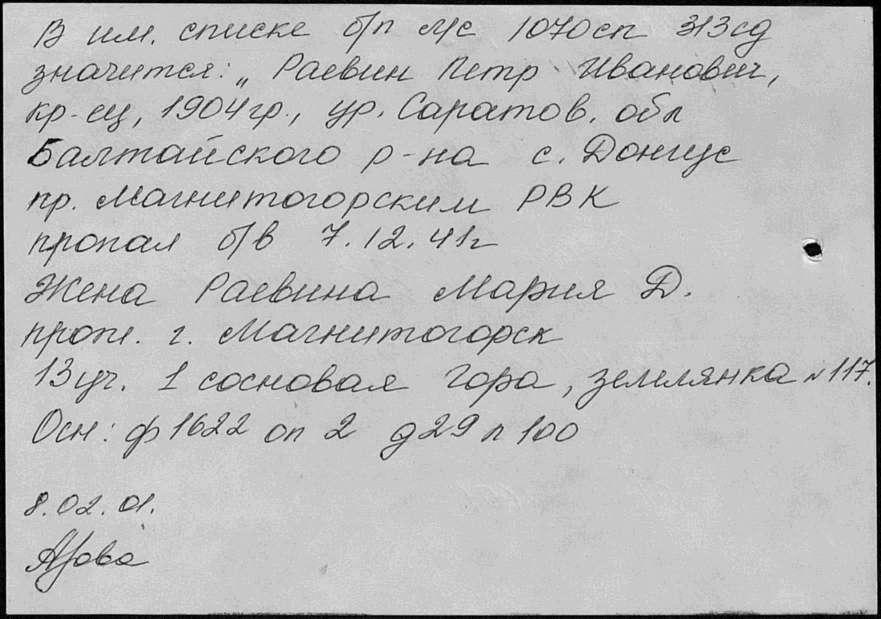 В им. списке б/п л/с 1070сп 313сд
значится: „Раевин Петр Иванович,
кр-ец, 1904гр., ур. Саратов. обл
Балтайского р-на с. Донгус
пр. Магнитогорским РВК
пропал б/в 7.12.41г
Жена Раевина Мария Д.
прож. г. Магнитогорск
13уч. 1 сосновая гора, землянка №117.
Осн: ф1622 оп 2 д29 л100
8.02.01.